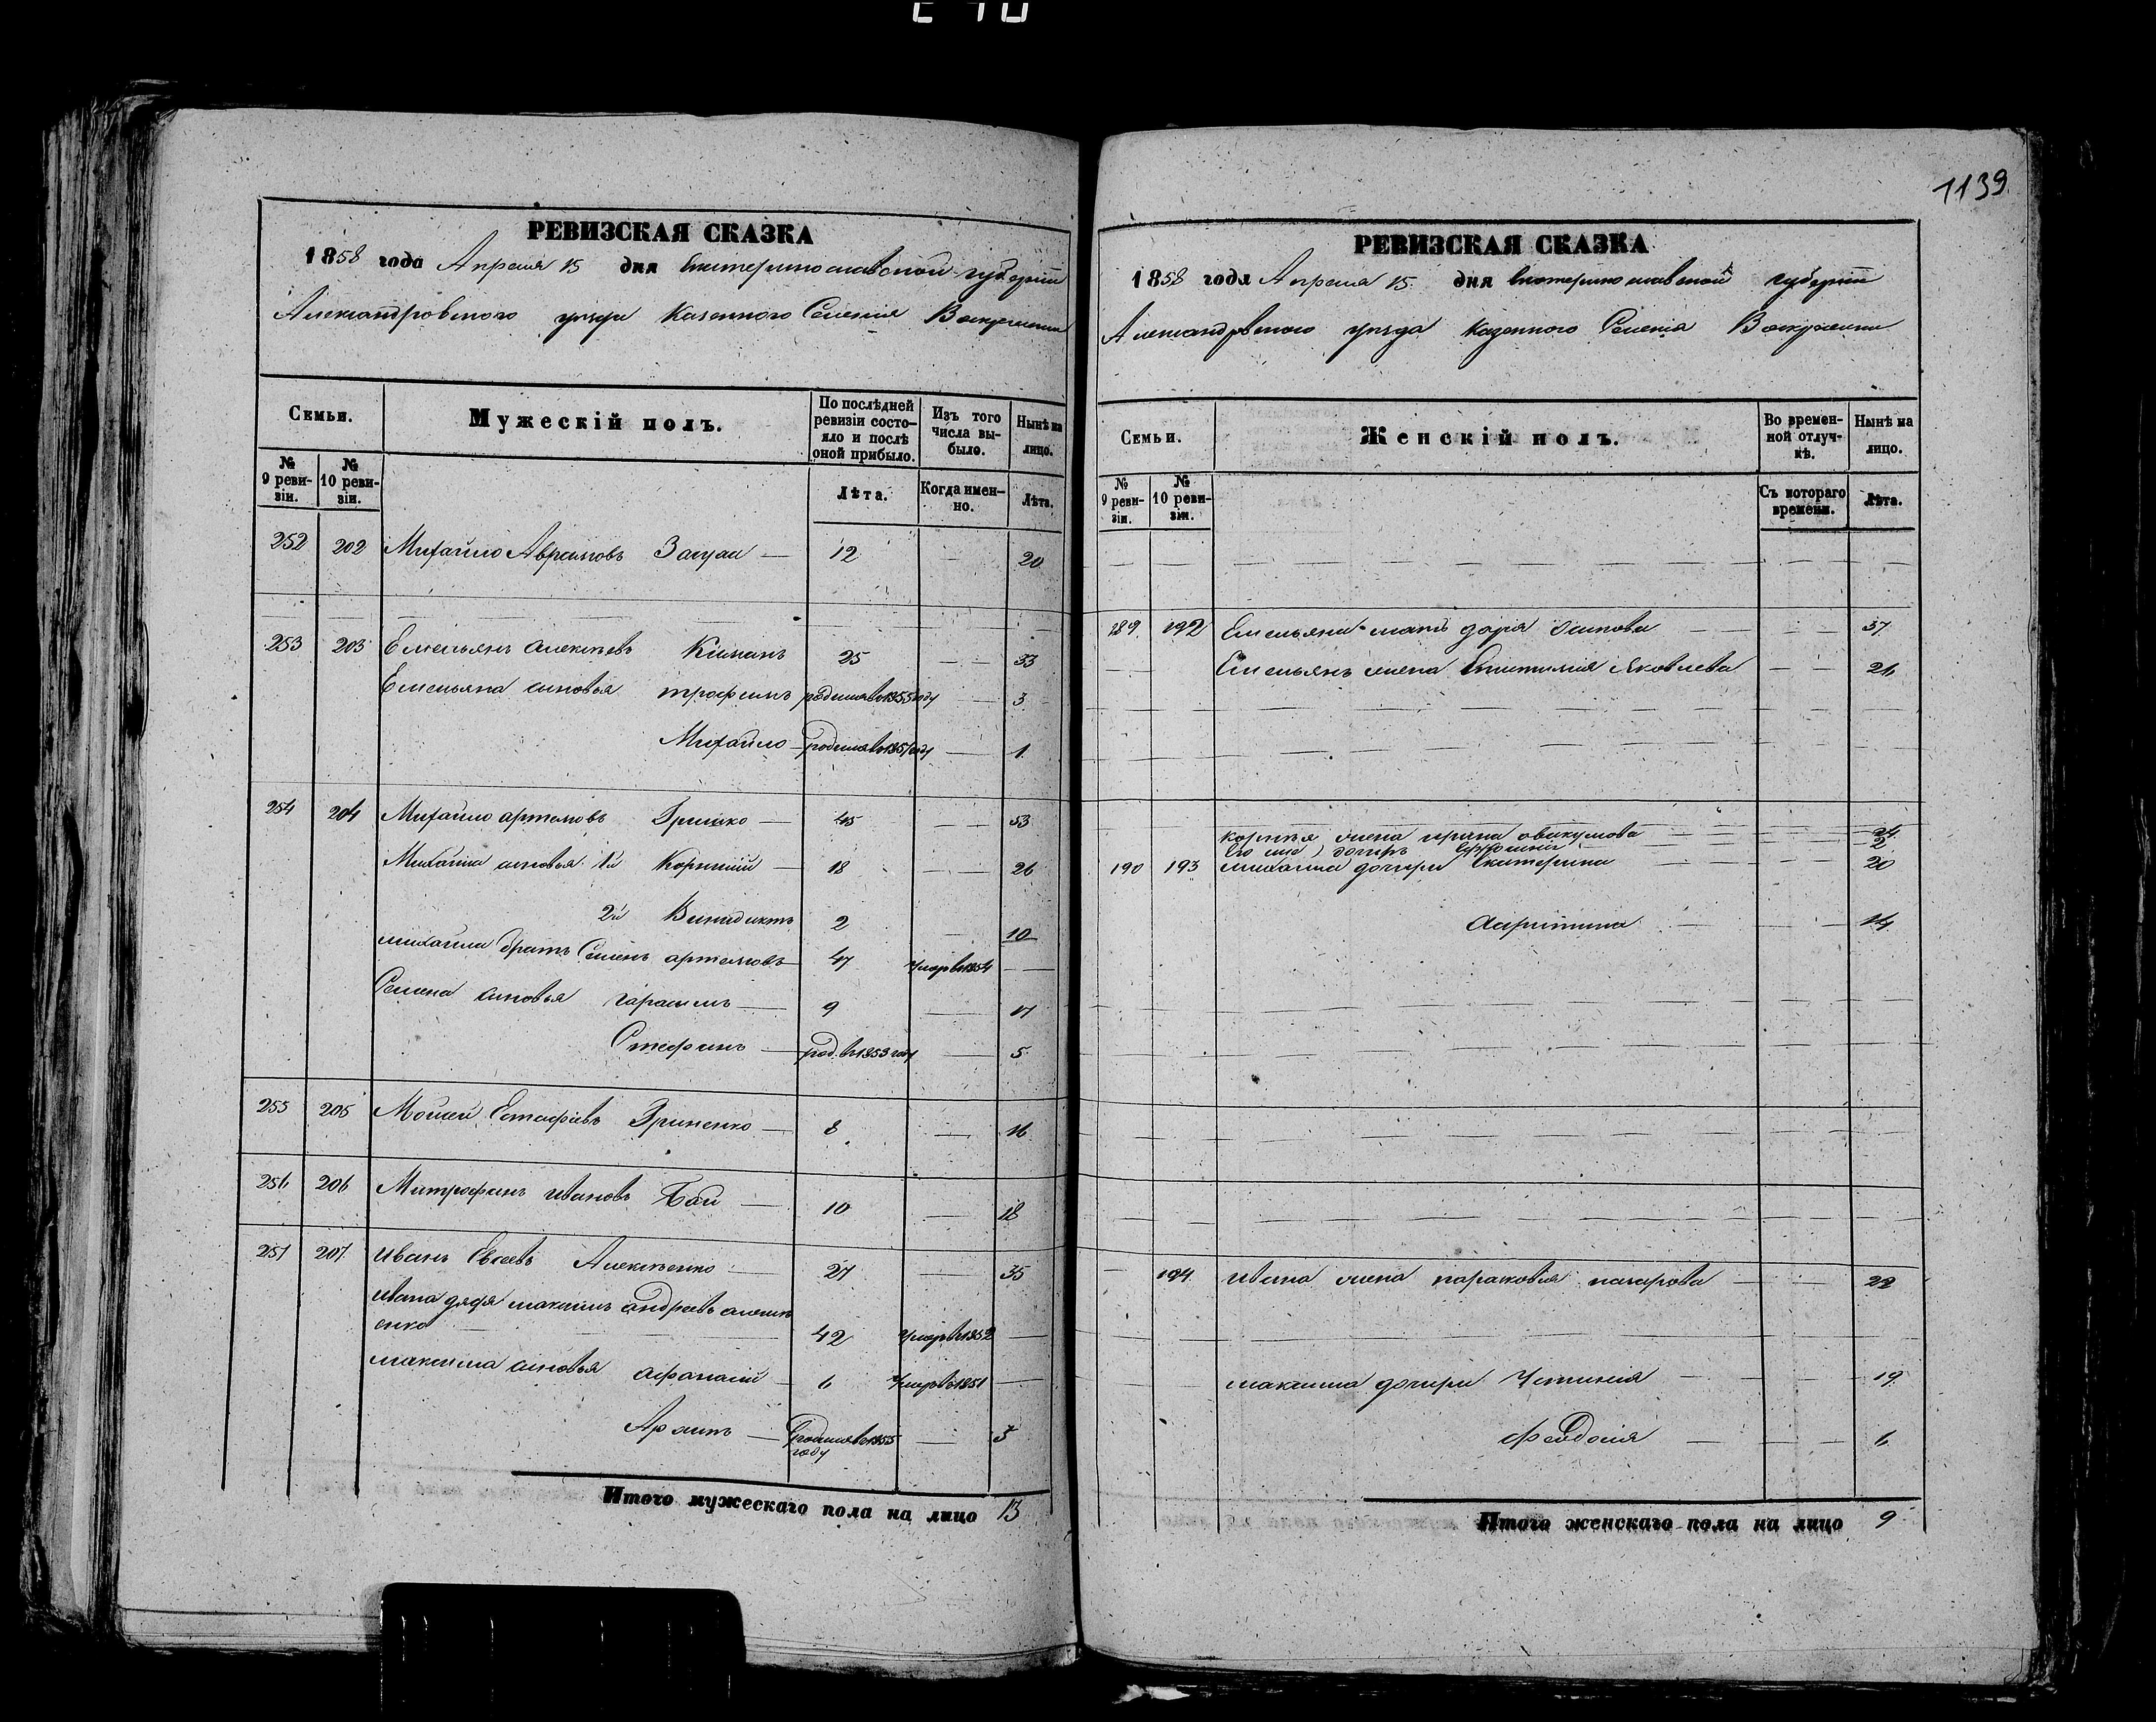 1139
РЕВИЗСКАЯ СКАЗКА
1858 года Апреля 15 дня Екатеринославской губернiи
Александровского уезда Казенного Селенiя Воскресенки
Семьи.
Мужескiй полъ.
По послѣдней ревизiи состо-
яло и послѣ
оной прибыло.
Изъ того
числа вы-
было.
Нынѣ на
лицо.
№
9 реви-
зiи.
№
10 реви-
зiи.
Лѣта.
Когда имен-
но.
Лѣта.
252 202 Михайло Аврамовъ — 12 — 20
253 203 Емельянъ Алексѣевъ 25 — 33
Емельяна сыновья трофимъ родился в 1855 году — 3
Михайло — родился в 1857 году — 1
254 204 Михайло артемовъ Гришко — 45 — 53
Михайла сыновья 1й Корнiй — 18 — 26
2й Бенидиктъ 2 — 10
михайла братъ Семенъ артемовъ — 47 умер в 1854 —
Семена сыновья гарасимъ — 9 — 17
Стефанъ — род. в 1853 году — 5
255 205 Мойсей Естафiевъ Гриненко — 8 — 16
256 206 Митрофанъ ивановъ Бай — 10 — 18
257 207 иванъ Евсеевъ Алексѣенко — 27 — 35
ивана дядя максимъ андреевъ алексѣ
енко — 42 умер в 1852 —
максима сыновья афанасiй — 6 умер в 1851 —
Архипъ — родился в 1855
году — 3
Итого мужескаго пола на лицо 13
РЕВИЗСКАЯ СКАЗКА
1858 года Апреля 15 дня Екатеринославской губернiи
Александровского уезда Казенного Селенiя Воскресенки
Семьи.
Женскiй полъ.
Во времен-
ной отлуч-
кѣ.
Нынѣ на
лицо.
№
9 реви-
зiи.
№
10 реви-
зiи.
Съ котораго
времени.
Лѣта.
189 192 Емельяна мать дарiя Осипова — — 37
Емельянъ жена Яковлева — — 26
корнѣя жена ирина — 24
Его дочерь — 2
190 193 михайла дочери Екатерина — — 20
— — 14
194 ивана жена парасковiя назарова — — 22
максима дочери Устинiя — — 19
феодосiя — — 6
Итого женскаго пола на лицо 9